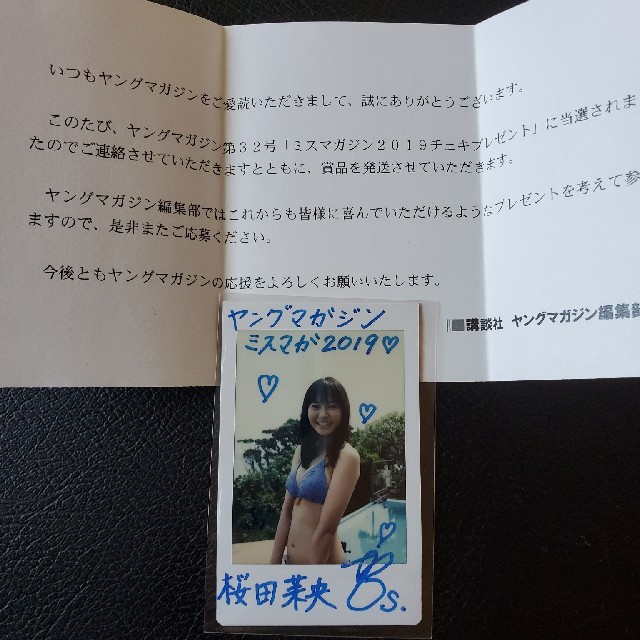 いつもヤングマガジンをご愛読いただきまして、誠にありがとうございます。
このたび、ヤングマガジン第３２号「ミスマガジン２０１９チェキプレゼント」に当選されまし
たのでご連絡させていただきますとともに、賞品を発送させていただきます。
ヤングマガジン編集部ではこれからも皆様に喜んでいただけるようなプレゼントを考えて参
ますので、是非またご応募ください。
今後ともヤングマガジンの応援をよろしくお願いいたします。
講談社 ヤングマガジン編集部
ヤングマガジン
ミスマガ2019♡
桜田茉央